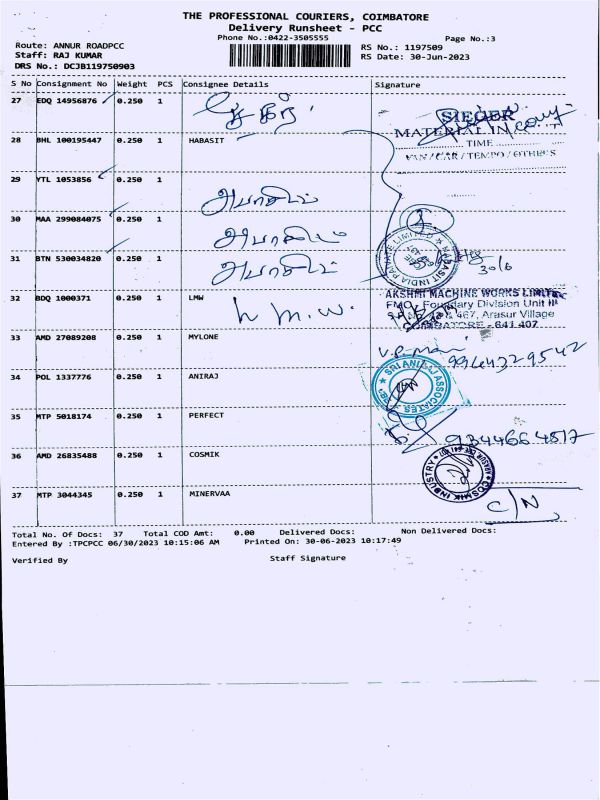 THE PROFESSIONAL COURIERS, COIMBATORE
Delivery Runsheet - PCC
Phone No.:0422-3505555
Page No.:3
Route: ANNUR ROADPCC
RS No.: 1197509
Staff: RAJ KUMAR
RS Date: 30-Jun-2023
DRS No.: DCJB119750903
S No Consignment No Weight PCS Consignee Details Signature
27 EDQ 14956876 0.250 1
SIEGER
MATERIAL IN
TIME
VAN / CAR / TEMPO / OTHERS
28 BHL 100195447 0.250 1 HABASIT
29 YTL 1053856 0.250 1
30 MAA 299084075 0.250 1
HABASIT INDIA PRIVATE LIMITED
31 BTN 530034820 0.250 1
30/6
32 BDQ 1000371 0.250 1 LMW
L M. W.
AKSHMI MACHINE WORKS LIMITED
FMO, Foundary Division Unit II
467, Arasur Village
COIMBATORE - 641 407
33 AMD 27089208 0.250 1 MYLONE
V.P. Mani 9964329542
34 POL 1337776 0.250 1 ANIRAJ
SRI ANURAJ ASSOCIATES
35 MTP 5018174 0.250 1 PERFECT
9344664817
36 AMD 26835488 0.250 1 COSMIK
COSMIK INDUSTRY
37 MTP 3044345 0.250 1 MINERVAA
C/N
Total No. Of Docs: 37 Total COD Amt: 0.00 Delivered Docs: Non Delivered Docs:
Entered By :TPCPCC 06/30/2023 10:15:06 AM Printed On: 30-06-2023 10:17:49
Verified By Staff Signature